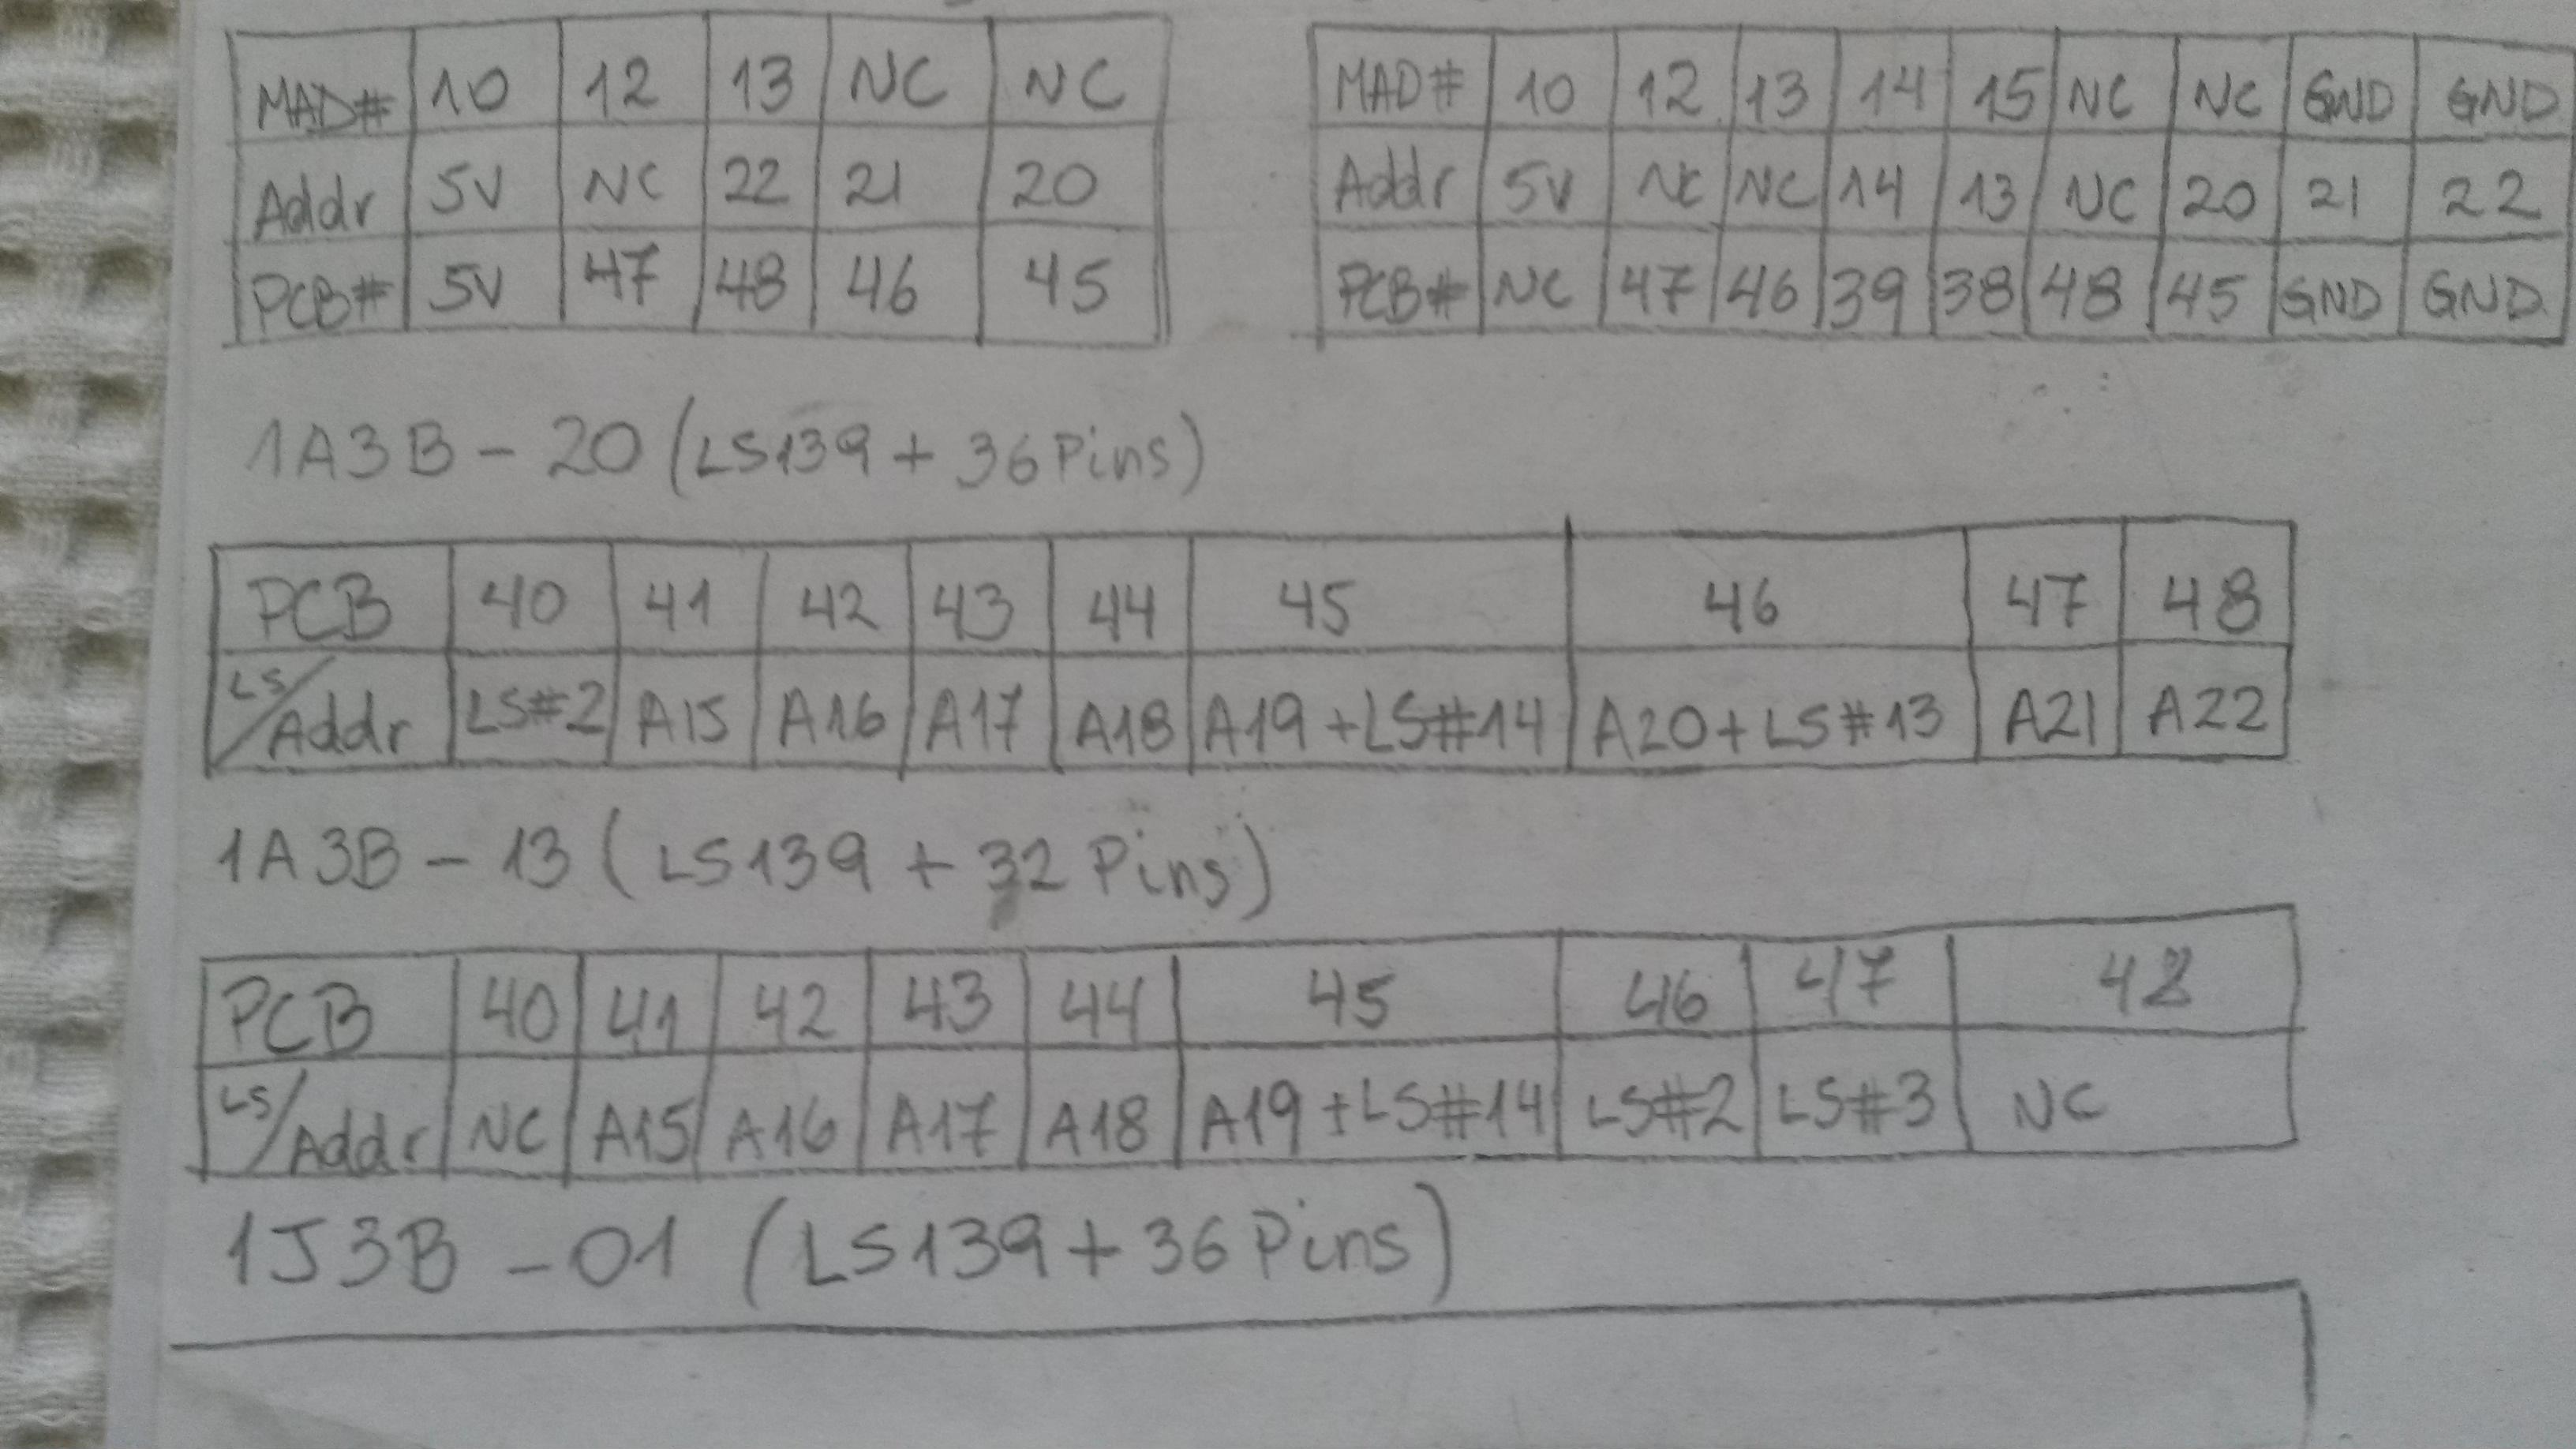 MAD# 10 12 13 NC NC
Addr 5V NC 22 21 20
PCB# 5V 47 48 46 45
MAD# 10 12 13 14 15 NC NC GND GND
Addr 5V NC NC 14 13 NC 20 21 22
PCB# NC 47 46 39 38 48 45 GND GND
1A3B - 20 (LS139 + 36 Pins)
PCB 40 41 42 43 44 45 46 47 48
LS/Addr LS#2 A15 A16 A17 A18 A19+LS#14 A20+LS#13 A21 A22
1A3B - 13 (LS139 + 32 Pins)
PCB 40 41 42 43 44 45 46 47 48
LS/Addr NC A15 A16 A17 A18 A19+LS#14 LS#2 LS#3 NC
1J3B - 01 (LS139 + 36 Pins)